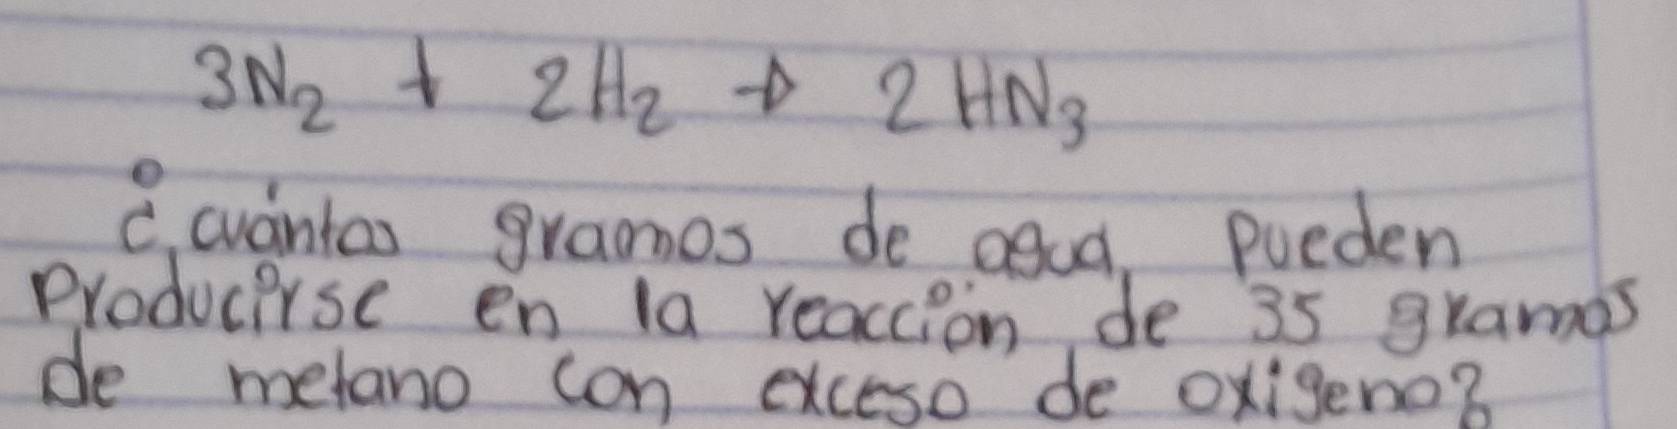 3N₂ + 2H₂ → 2HN₃
¿cuántos gramos de agua, pueden
Producirse en la reacción, de 35 gramos
de metano con exceso de oxigeno?